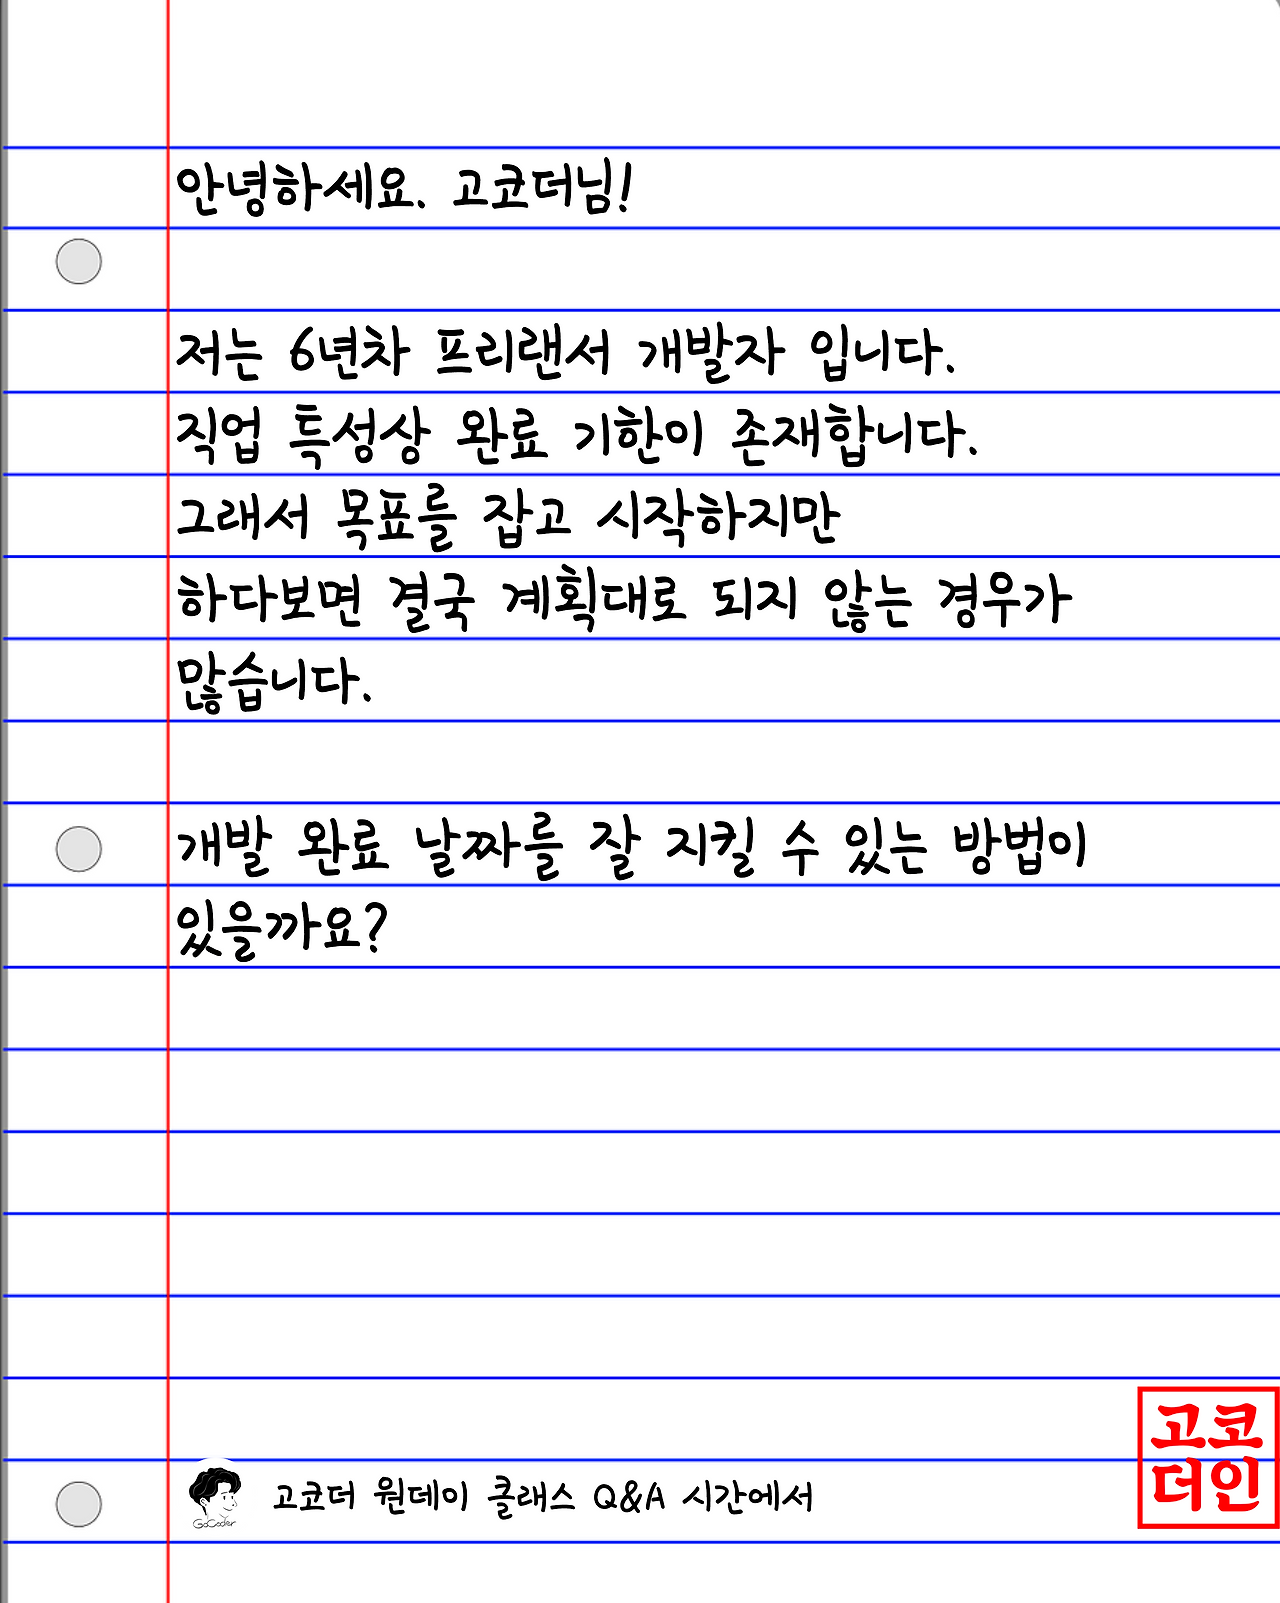 안녕하세요. 고코더님!
저는 6년차 프리랜서 개발자 입니다.
직업 특성상 완료 기한이 존재합니다.
그래서 목표를 잡고 시작하지만
하다보면 결국 계획대로 되지 않는 경우가
많습니다.
개발 완료 날짜를 잘 지킬 수 있는 방법이
있을까요?
GoCoder
고코더 원데이 클래스 Q&A 시간에서
고코
더인